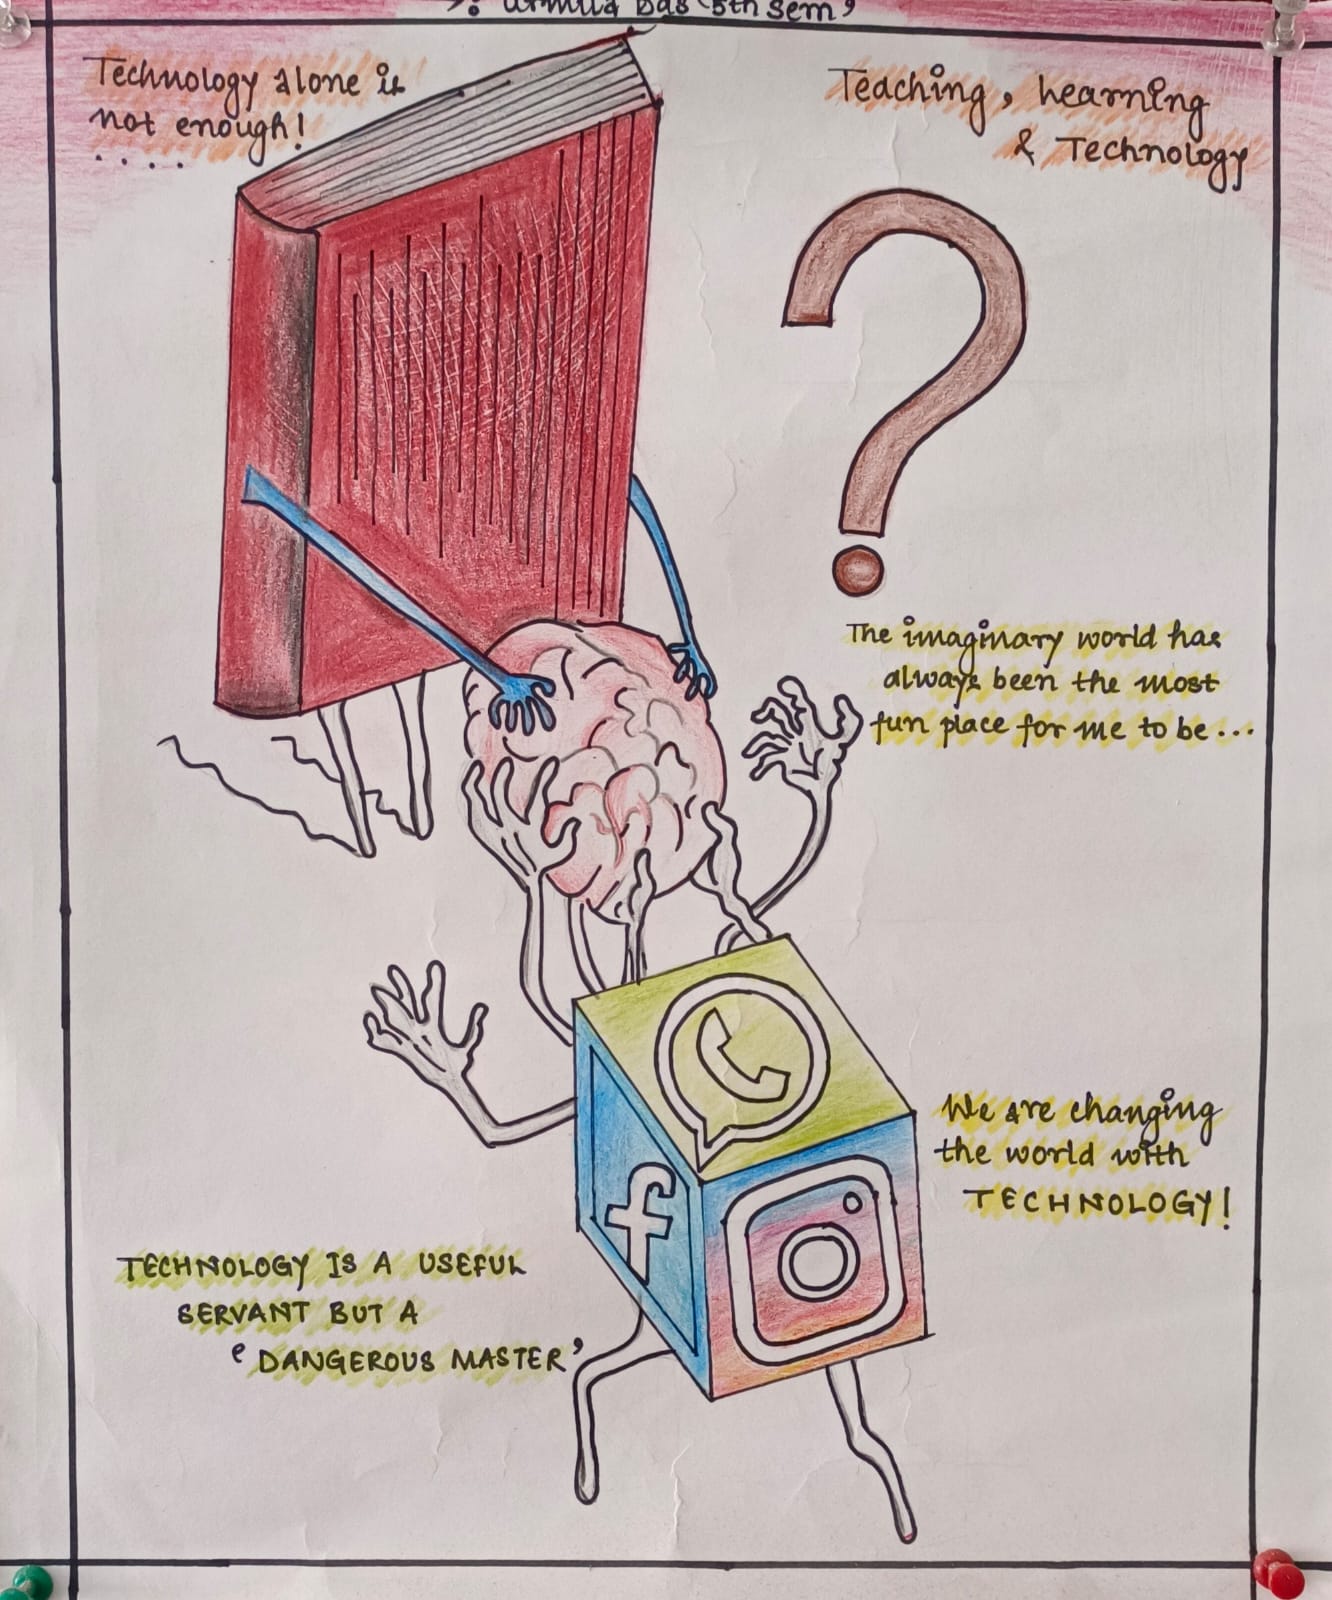 : Urmila Das (5th sem)
Technology alone is
not enough!
.....
Teaching, Learning
& Technology
The imaginary world has
always been the most
fun place for me to be...
We are changing
the world with
TECHNOLOGY!
TECHNOLOGY IS A USEFUL
SERVANT BUT A
'DANGEROUS MASTER'